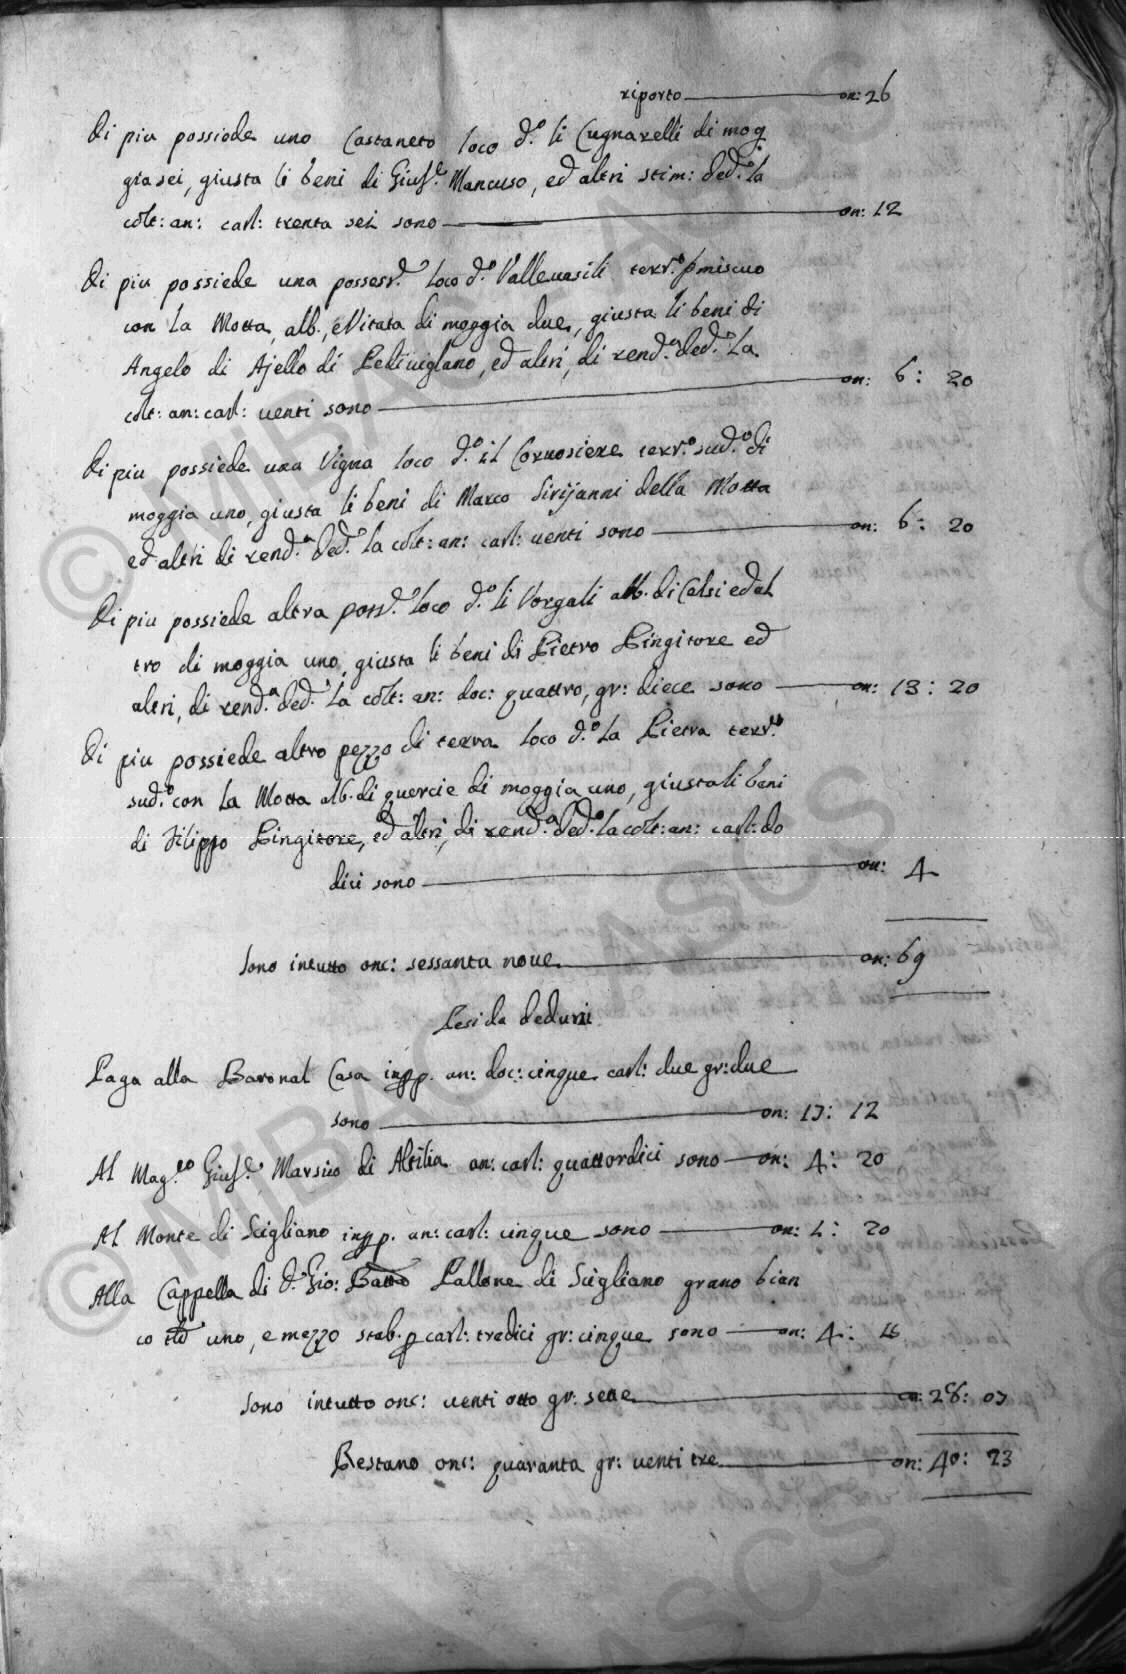 riporto on: 26
Di piu possiede uno Castaneto loco d.º li Cugnarelli di mog
gia sei, giusta li beni di Gius.e Mancuso, ed altri stim: ded.º la
colt: an: carl: trenta sei sono on: 12
Di piu possiede una possess.e loco d.º Vallevasili terr.º pmiscuo
con la Motta, alb., e Vitata di moggia due, giusta li beni di
Angelo di Ajello di Pedivigliano, ed altri, di rend.a ded.º la
colt: an: carl: venti sono on: 6: 20
Di piu possiede una Vigna loco d.º il Cornosiere terr.º sud.º di
moggia uno, giusta li beni di Marco Sirijanni della Motta
ed altri di rend.a ded.º la colt: an: carl: venti sono on: 6: 20
Di piu possiede altra poss.e loco d.º li Vorgali alb. di Celsi ed al
tro di moggia uno, giusta li beni di Pietro Pingitore ed
altri, di rend.a ded.º la colt: an: doc: quattro, gr: diece sono on: 13: 20
Di piu possiede altro pezzo di terra loco d.º la Pietra terr.º
sud.º con la Motta alb. di quercie di moggia uno, giusta li beni
di Filippo Pingitore, ed altri, di rend.a ded.º la colt: an: carl: do
dici sono on: 4
Sono intutto onc: sessanta nove on: 69
Pesi da dedursi
Paga alla Baronal Casa inpp. an: doc: cinque carl: due gr: due
sono on: 17: 12
Al Mag.co Gius.e Marsico di Altilia an: carl: quattordici sono on: 4: 20
Al Monte di Scigliano inpp. an: carl: cinque sono on: 1: 20
Alla Cappella di d. Gio: Batta Pallone di Scigliano grano bian
co uno, e mezzo stab. p carl: tredici gr: cinque sono on: 4: 15
Sono intutto onc: venti otto gr: sette on: 28: 07
Restano onc: quaranta gr: venti tre on: 40: 23
© MIBAC ASCS
© MIBAC ASCS